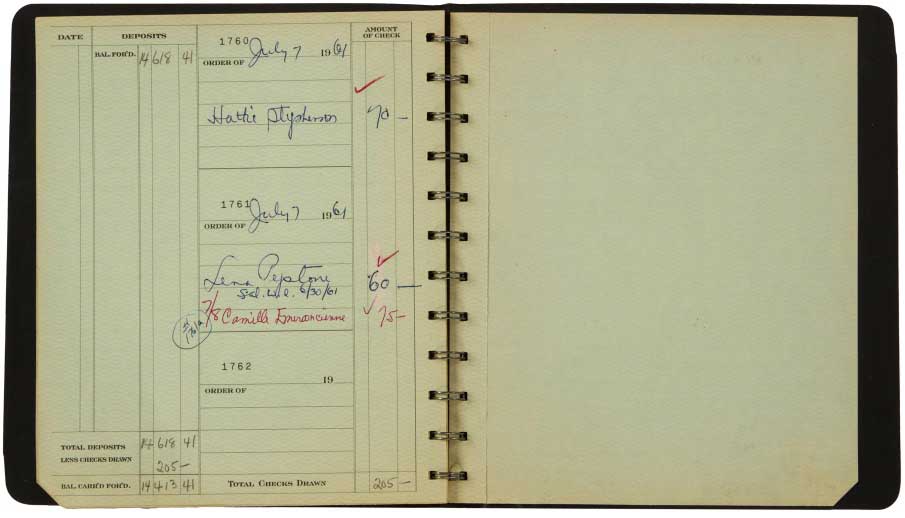 DATE DEPOSITS AMOUNT OF CHECK
BAL. FOR'D. 14 618 41
1760 July 7 1961
ORDER OF
Hattie Stephenson 70 —
1761 July 7 1961
ORDER OF
Lena Pepitone 60 —
Sal. W.E. 6/30/61
7/8 Camille 75 —
1762
19
ORDER OF
TOTAL DEPOSITS 14 618 41
LESS CHECKS DRAWN 205 —
BAL. CARR'D FOR'D. 14 413 41 TOTAL CHECKS DRAWN 205 —